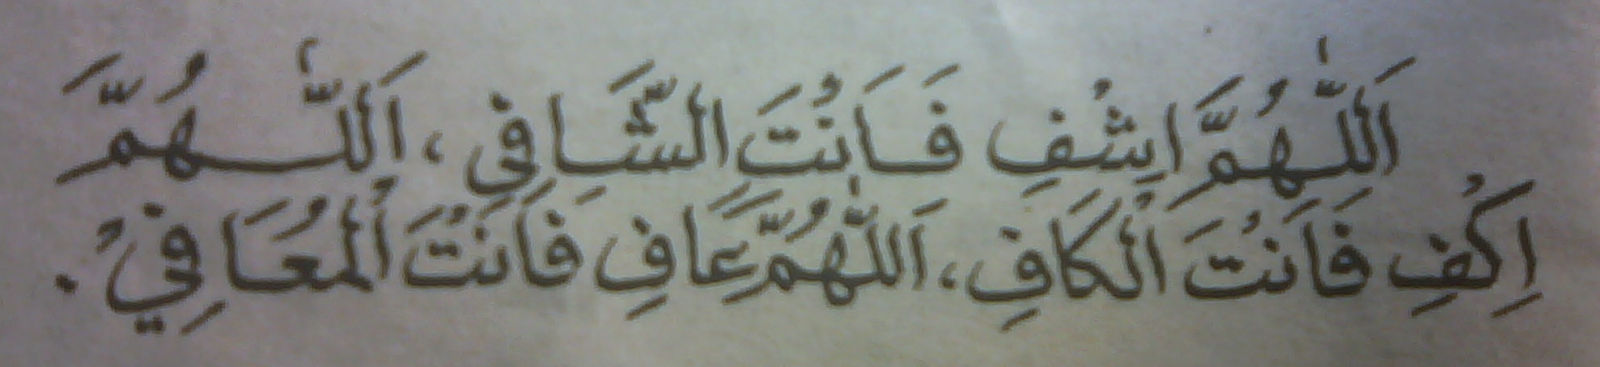 اَللّٰهُمَّ اِشْفِ فَاَنْتَ الشَّافِي ، اَللّٰهُمَّ
اِكْفِ فَاَنْتَ الْكَافِ ، اَللّٰهُمَّ عَافِ فَاَنْتَ الْمُعَافِيْ .